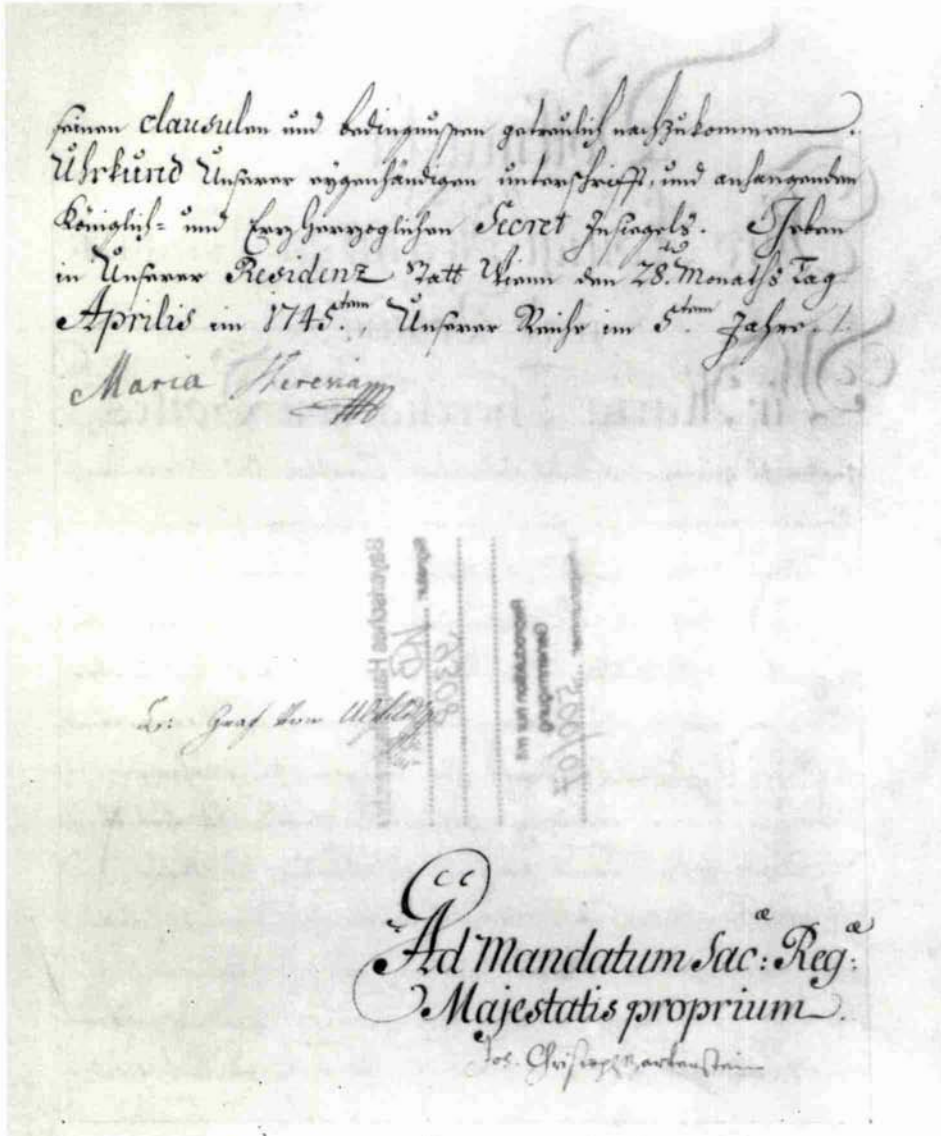 seinen clausulen und bedingnussen getreulich nachzukommen.
Uhrkund Unserer eygenhändigen unterschrifft, und anhangenden
Königlich- und Erzherzoglichen Secret Insiegels. Geben
in Unserer Residenz Statt Wienn den 28. Monaths Tag
Aprilis im 1745.ten Unserer Reiche im 5.ten Jahre.
Maria Theresia
Graf von Ulfeld
Ad Mandatum Sac:æ Reg:æ
Majestatis proprium.
Jos. Christoph Bartenstein